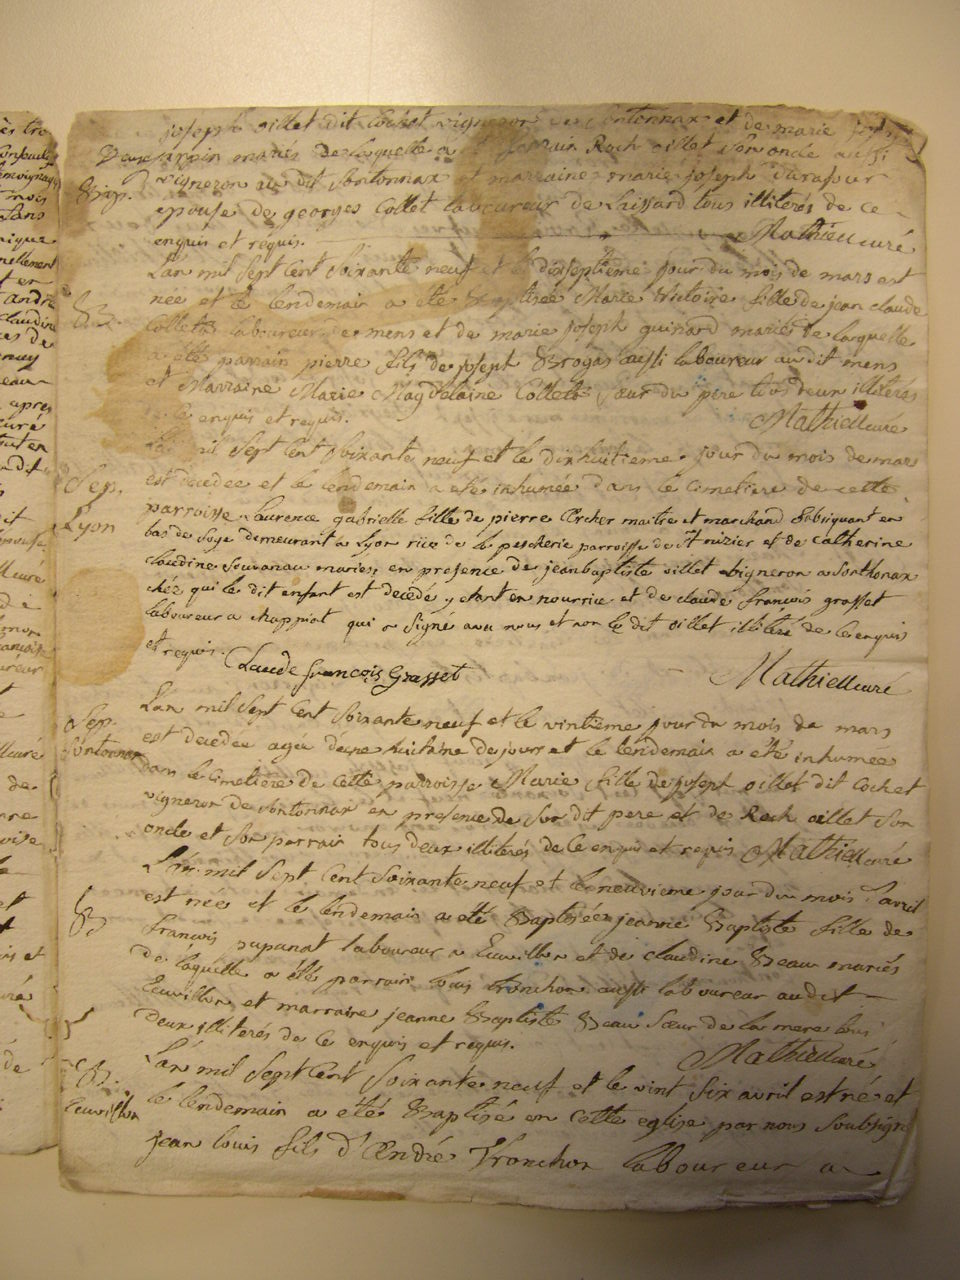 joseph oillet dit Cochet vigneron de Sontonnax et de marie joseph
mariés de laquelle a été parrain Roch oillet son oncle aussi
Bap.
vigneron au dit Sontonnax et marraine marie joseph Durafour
epouse de georges Collet laboureur de Luissard tous illiterés de ce
enquis et requis. Mathieu curé
L'an mil sept cent soixante neuf et le dixseptieme jour du mois de mars est
née et le lendemain a été Baptisée Marie Victoire fille de jean claude
B.
Collet laboureur de mens et de marie joseph guinard mariés de laquelle
a été parrain pierre fils de joseph Brogas aussi laboureur au dit mens
et Marraine Marie Magdelaine Collet sœur du pere tous deux illiterés
de ce enquis et requis. Mathieu curé
L'an mil sept cent soixante neuf et le dixhuitieme jour du mois de mars
Sep.
est decedée et le lendemain a été inhumée dans le cimetiere de cette
Lyon
parroisse Laurence gabrielle fille de pierre Archer maitre et marchand fabriquant en
bas de soye demeurant a Lyon rue de la pescherie parroisse de St nizier et de catherine
claudine mariés, en presence de jeanbaptiste oillet vigneron a Sonthonax
chés qui le dit enfant est decedé y etant en nourrice et de claude françois grasset
laboureur a chappiat qui a signé avec nous et non le dit oillet illitéré de ce enquis
et requis. Claude françois Grasset Mathieu curé
L'an mil sept cent soixante neuf et le vintieme jour du mois de mars
Sep.
Sontonnax
est decedée agée d'une huitaine de jours et le lendemain a été inhumée
dans le cimetiere de cette parroisse Marie fille de joseph oillet dit Cochet
vigneron de Sontonnax en presence de son dit pere et de Roch oillet son
oncle et son parrain tous deux illiterés de ce enquis et requis Mathieu curé
L'an mil sept cent soixante neuf et le neuvieme jour du mois d'avril
est née et le lendemain a été Baptisée jeanne Baptiste fille de
B
françois pupunat laboureur a Euvillon et de claudine Beau mariés
de laquelle a été parrain louis tronchon aussi laboureur au dit
Euvillon et marraine jeanne Baptiste Beau sœur de la mere tous
deux illiterés de ce enquis et requis. Mathieu curé
L'an mil sept cent soixante neuf et le vint six avril est né et
B.
Euvillon
le lendemain a été Baptisé en cette eglise par nous soubsigné
jean louis fils d'André Tronchon laboureur a